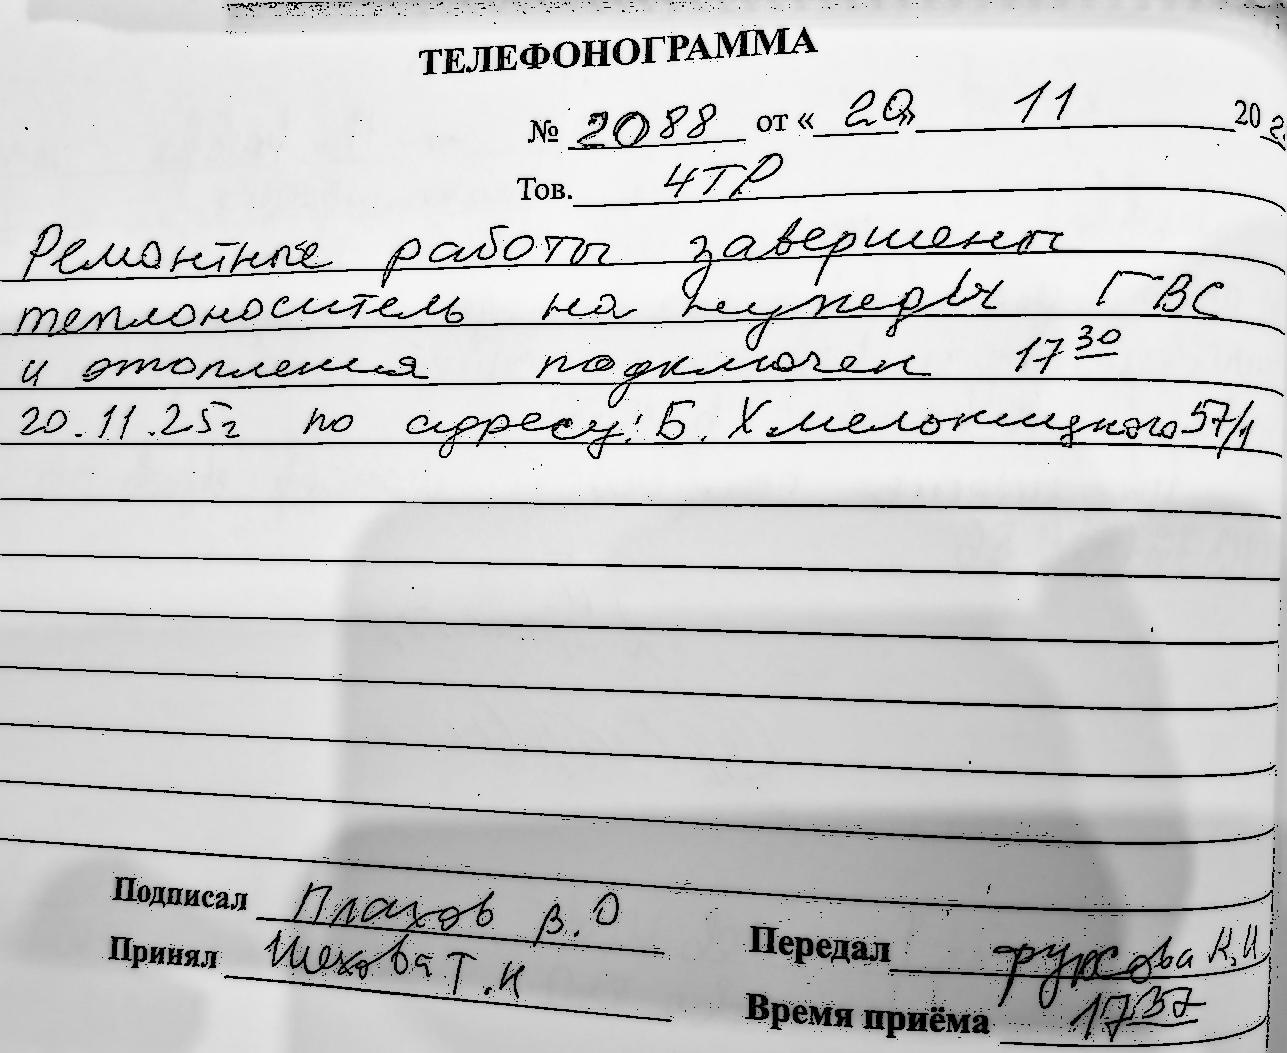 ТЕЛЕФОНОГРАММА
№ 2088 от « 20 » 11 20 2
Тов. 4ТР
Ремонтные работы завершены
теплоноситель на нужды ГВС
и отопления подключен 17 30
20.11.25г по адресу: Б. Хмельницкого 57/1
Подписал Плахов В.О
Принял Шехова Т.Н
Передал К.И
Время приёма 17 37